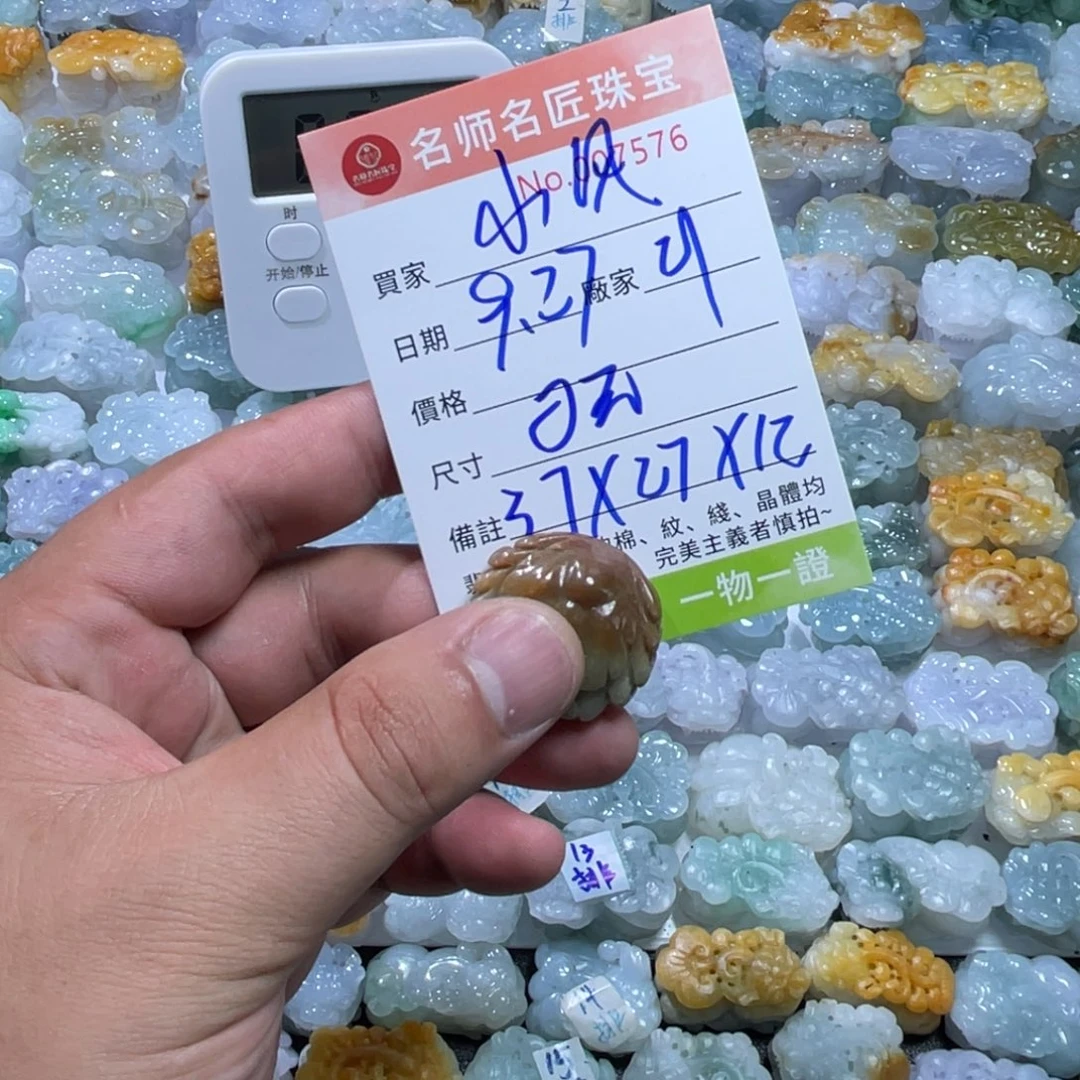 2
排
名师名匠珠宝
No.007576
时
開始/停止
買家 小風
日期 9.27 廠家
價格
尺寸 37X27X12
備註 棉、紋、綫、晶體均
完美主義者慎拍~
一物一證
13
排
14
排
15